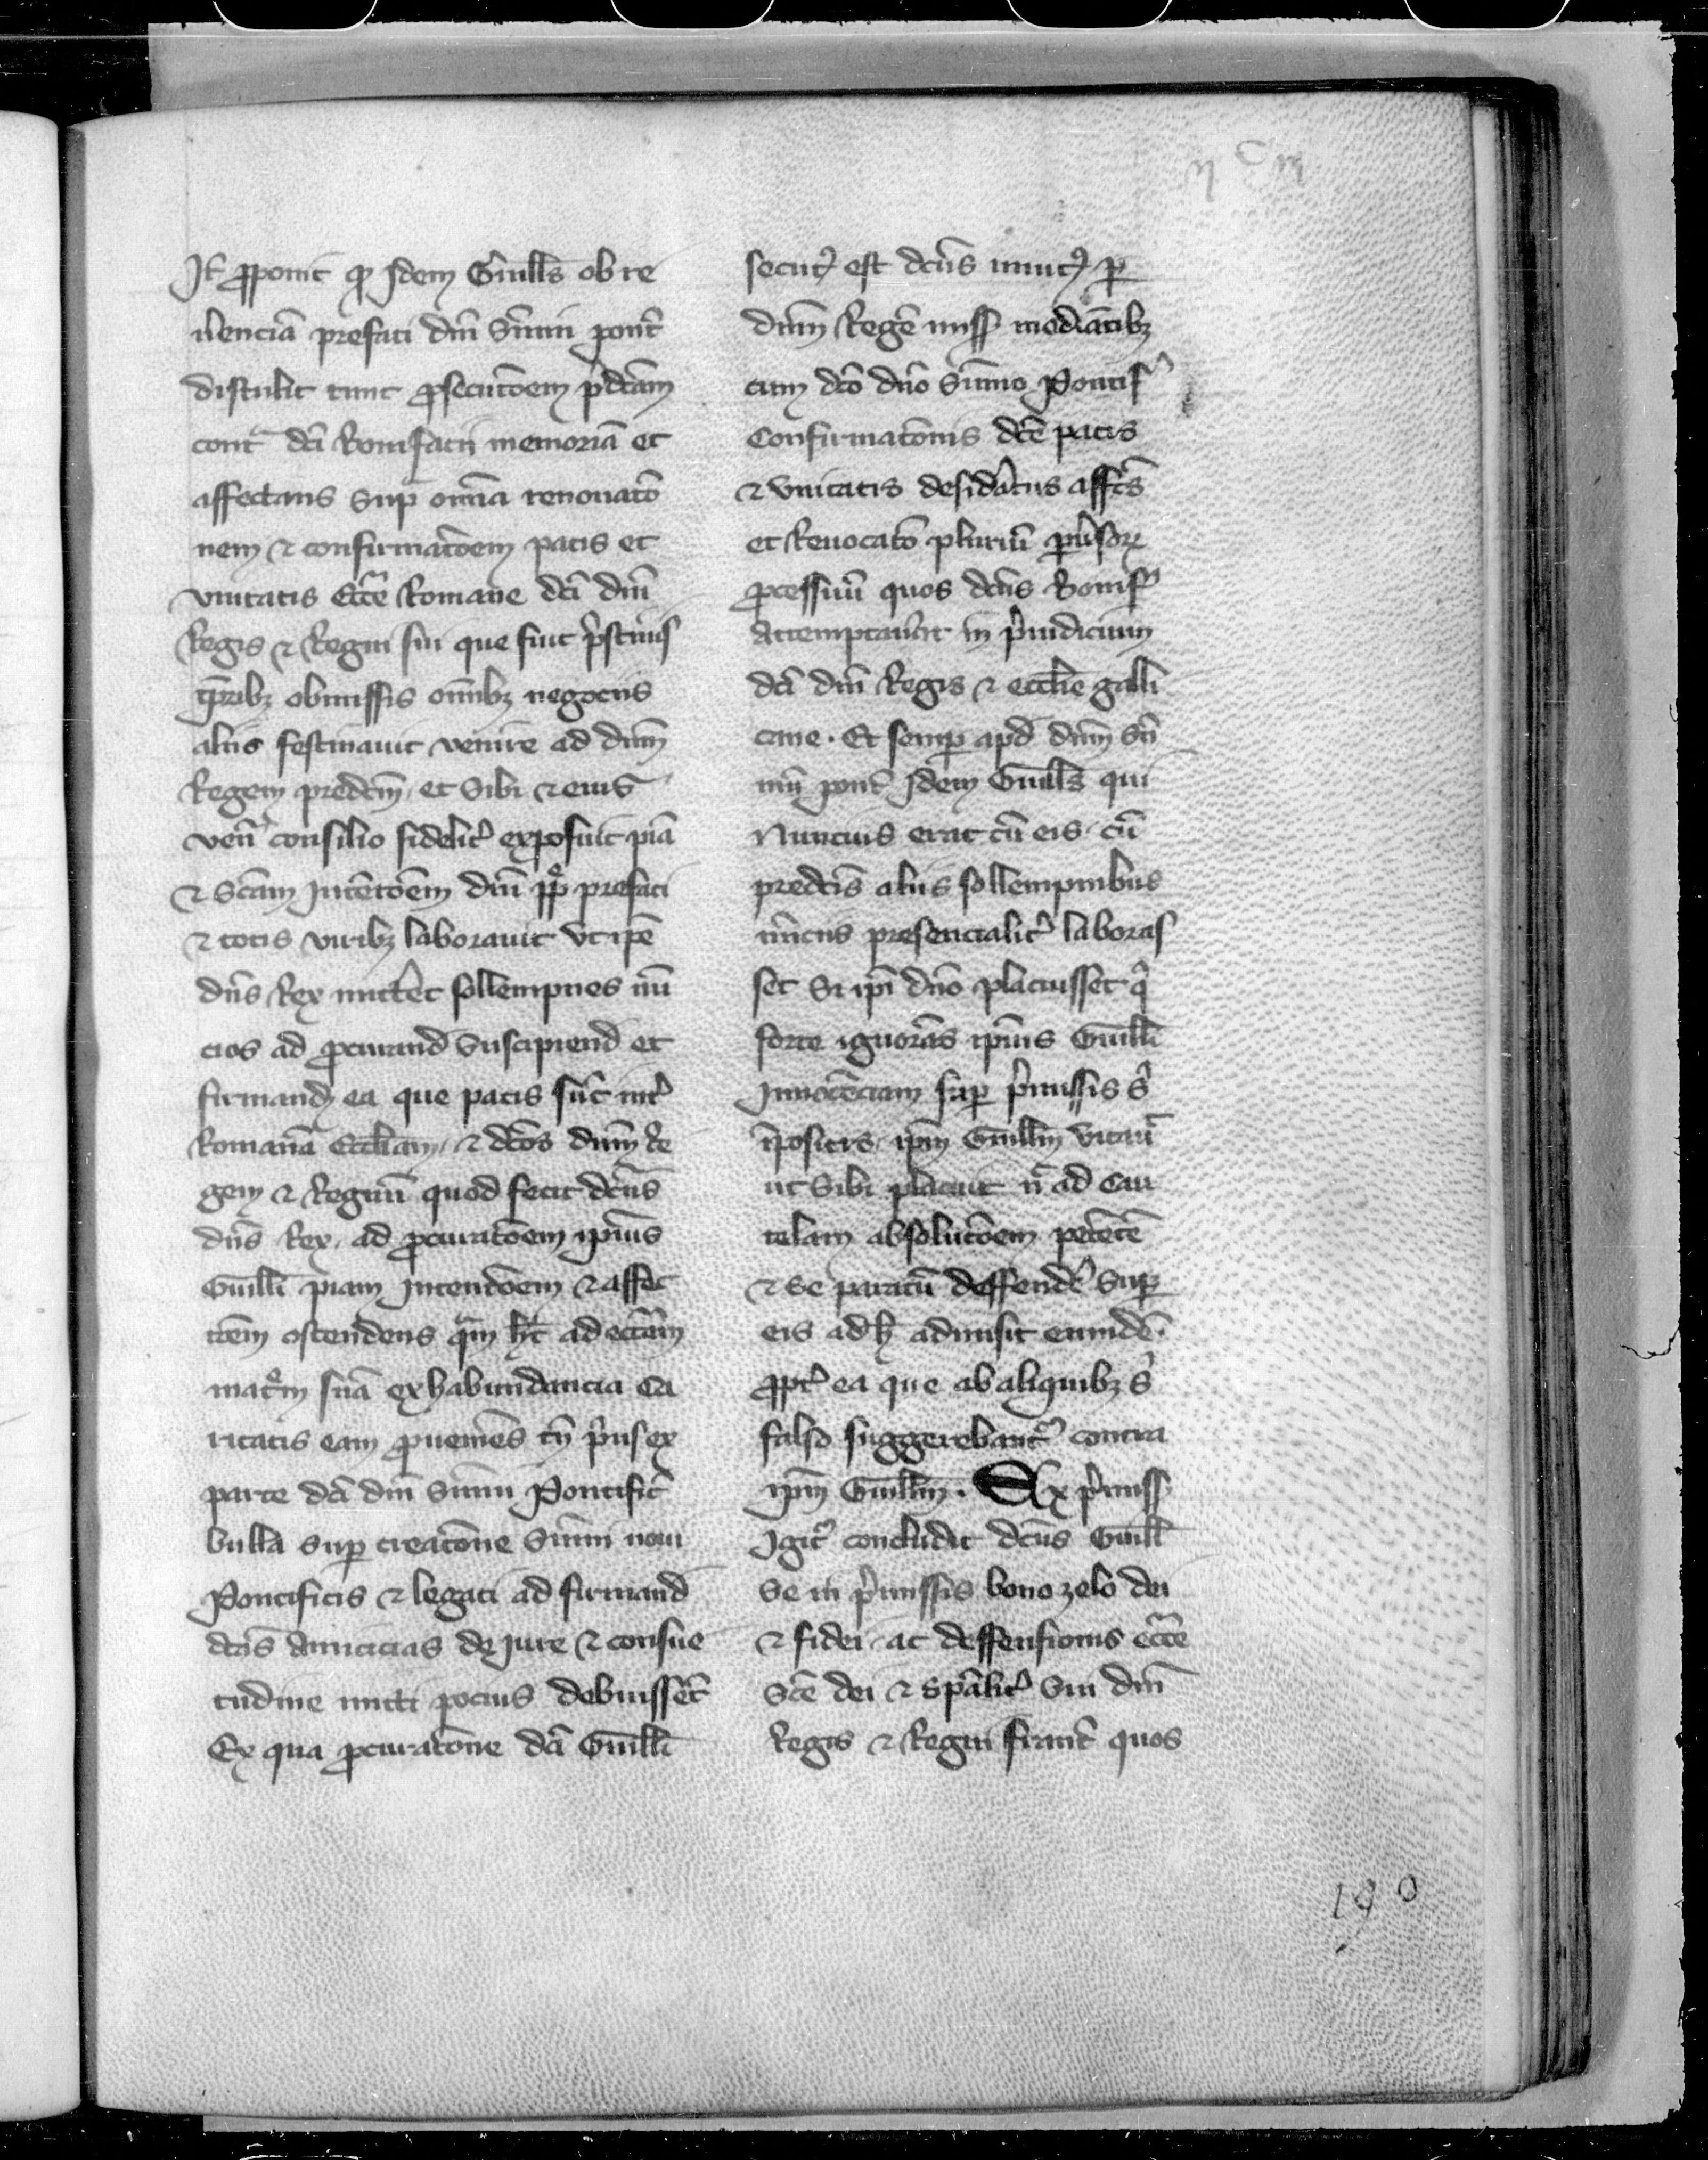 Jt̄ ꝓponit ꝙ Jdem Guill̄s ob re
u̾enciā prefati dn̄i Sūmi pont̾
distulit tunc ꝓsecutōem p̾dc̄am
cont̾ dc̄i Bonifacii memoriā et
affectans Suꝑ om̄ia renouatō
nem ⁊ confirmatōem pacis et
vnitatis Ecc̄e Romane dc̄i dn̄i
Regis ⁊ Regni sui que fuit p̾stinis
tꝑibꝫ obmissis om̄ibꝫ negociis
aliis festinauit venire ad dn̄m
Regem predcm̄ et Sibi ⁊ eius
ven̄ consilio fidelit̾ exposuit piā
⁊ Scām Jntētōem dn̄i pp̄ prefati
⁊ totis viribꝫ laborauit vt ip̄e
dn̄s Rex mitt̾et sollempnes nū
cios ad ꝓcurand̄ Suscipiend̄ et
firmand̄ ea que pacis sūt int̾
Romanā Eccl̄iam ⁊ dc̄os dn̄m Re
gem ⁊ Regnū quod fecit dc̄us
dn̄s Rex ad ꝓcuratōem ip̄ius
Guill̄i piam Jntentōem ⁊ affec
tōem ostendens q̄m h̄t ad ecc̄am
mat̾m suā exhabundancia Ca
ritatis eam ꝓueniēs cū p̾us ex
parte dc̄i dn̄i Sūmi Pontific̄
bulla Suꝑ creatōne Sūmi noui
Pontificis ⁊ legati ad firmand̄
dc̄as Amicicias de Jure ⁊ consue
tudine mitti pocius debuissēt
Ex qua ꝓcuratōne dc̄i Guill̄i
secut̾ est dc̄us nunc̾ ꝑ
dn̄m Regē miss̄ mediātibꝫ
cum dc̄o dn̄o Sūmo Pontif̾
Confirmatōnis dc̄e pacis
⁊ vnitatis desid̾atus aff̄cs
et Reuocatō pluriū
ꝓcessuū quos dc̄us Bonif̾
Attemptau̾at in p̾iudicium
dc̄i dn̄i Regis ⁊ eccl̄ie galli
cane. Et semꝑ apd̄ dn̄m Sū
mū pont̾ Jdem Guill̄s qui
Nuncius erat cū eis cū
predc̄is aliis sollempnibus
nūciis presencialit̾ laboras
set Si ip̄i dn̄o placuisset q̾
forte ignorās ip̄ius Guill̄i
Jnnocēciam suꝑ p̾missis s̾
īpositis ip̄m Guill̄m vitau̾
ut Sibi placuit n̄ ad Cau
telam absolutōem petētē
⁊ Se paratū deffend̾e Suꝑ
eis adh̾ admisit eumdē
ꝓpt̾ ea que ab aliquibꝫ s̾
falso suggerebant̾ contra
ip̄m Guill̄m. Ex p̾miss̄
Jgit̾ concludit dc̄us Guill̄
Se in p̾missis bono zelo dei
⁊ fidei ac deffensionis ecc̄e
Sc̄e dei ⁊ Spālit̾ Sui dn̄i
Regis ⁊ Regni franc̾ quos
190